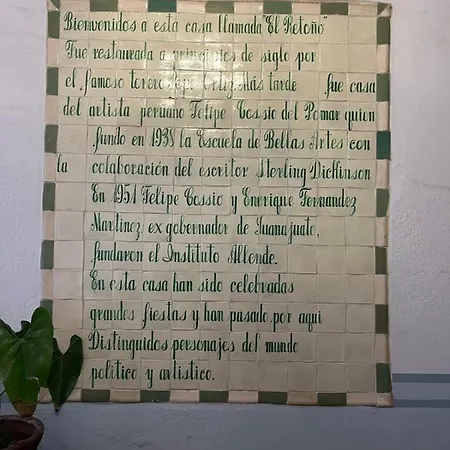 Bienvenidos a esta casa llamada "El Retoño"
Fue restaurada a principios de siglo por
el famoso torero Pepe Ortiz. Más tarde fue casa
del artista peruano Felipe Cossio del Pomar quien
fundo en 1938 la Escuela de Bellas Artes con
la colaboración del escritor Sterling Dickinson
En 1951 Felipe Cossio y Enrique Fernandez
Martinez, ex gobernador de Guanajuato,
fundaron el Instituto Allende.
En esta casa han sido celebradas
grandes fiestas y han pasado por aqui
Distinguidos personajes del mundo
politico y artistico.